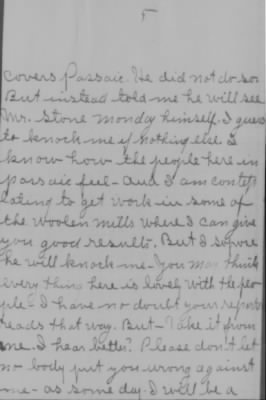 5
covers Passaic. He did not do so.
But instead told me he will see
Mr. Stone monday himself. I guess
to knock me if nothing else. I
know how the people here in
passaic feel - And I am contep
lating to get work in some of
the woolen mills where I can give
you good results. But I supose
he will knock me - You may think
every thing here is lovely with the peo-
ple - I have no doubt your reports
reads that way. But - Take it from
me. I hear better? Please don't let
no body put you wrong against
me - as some day I will be a